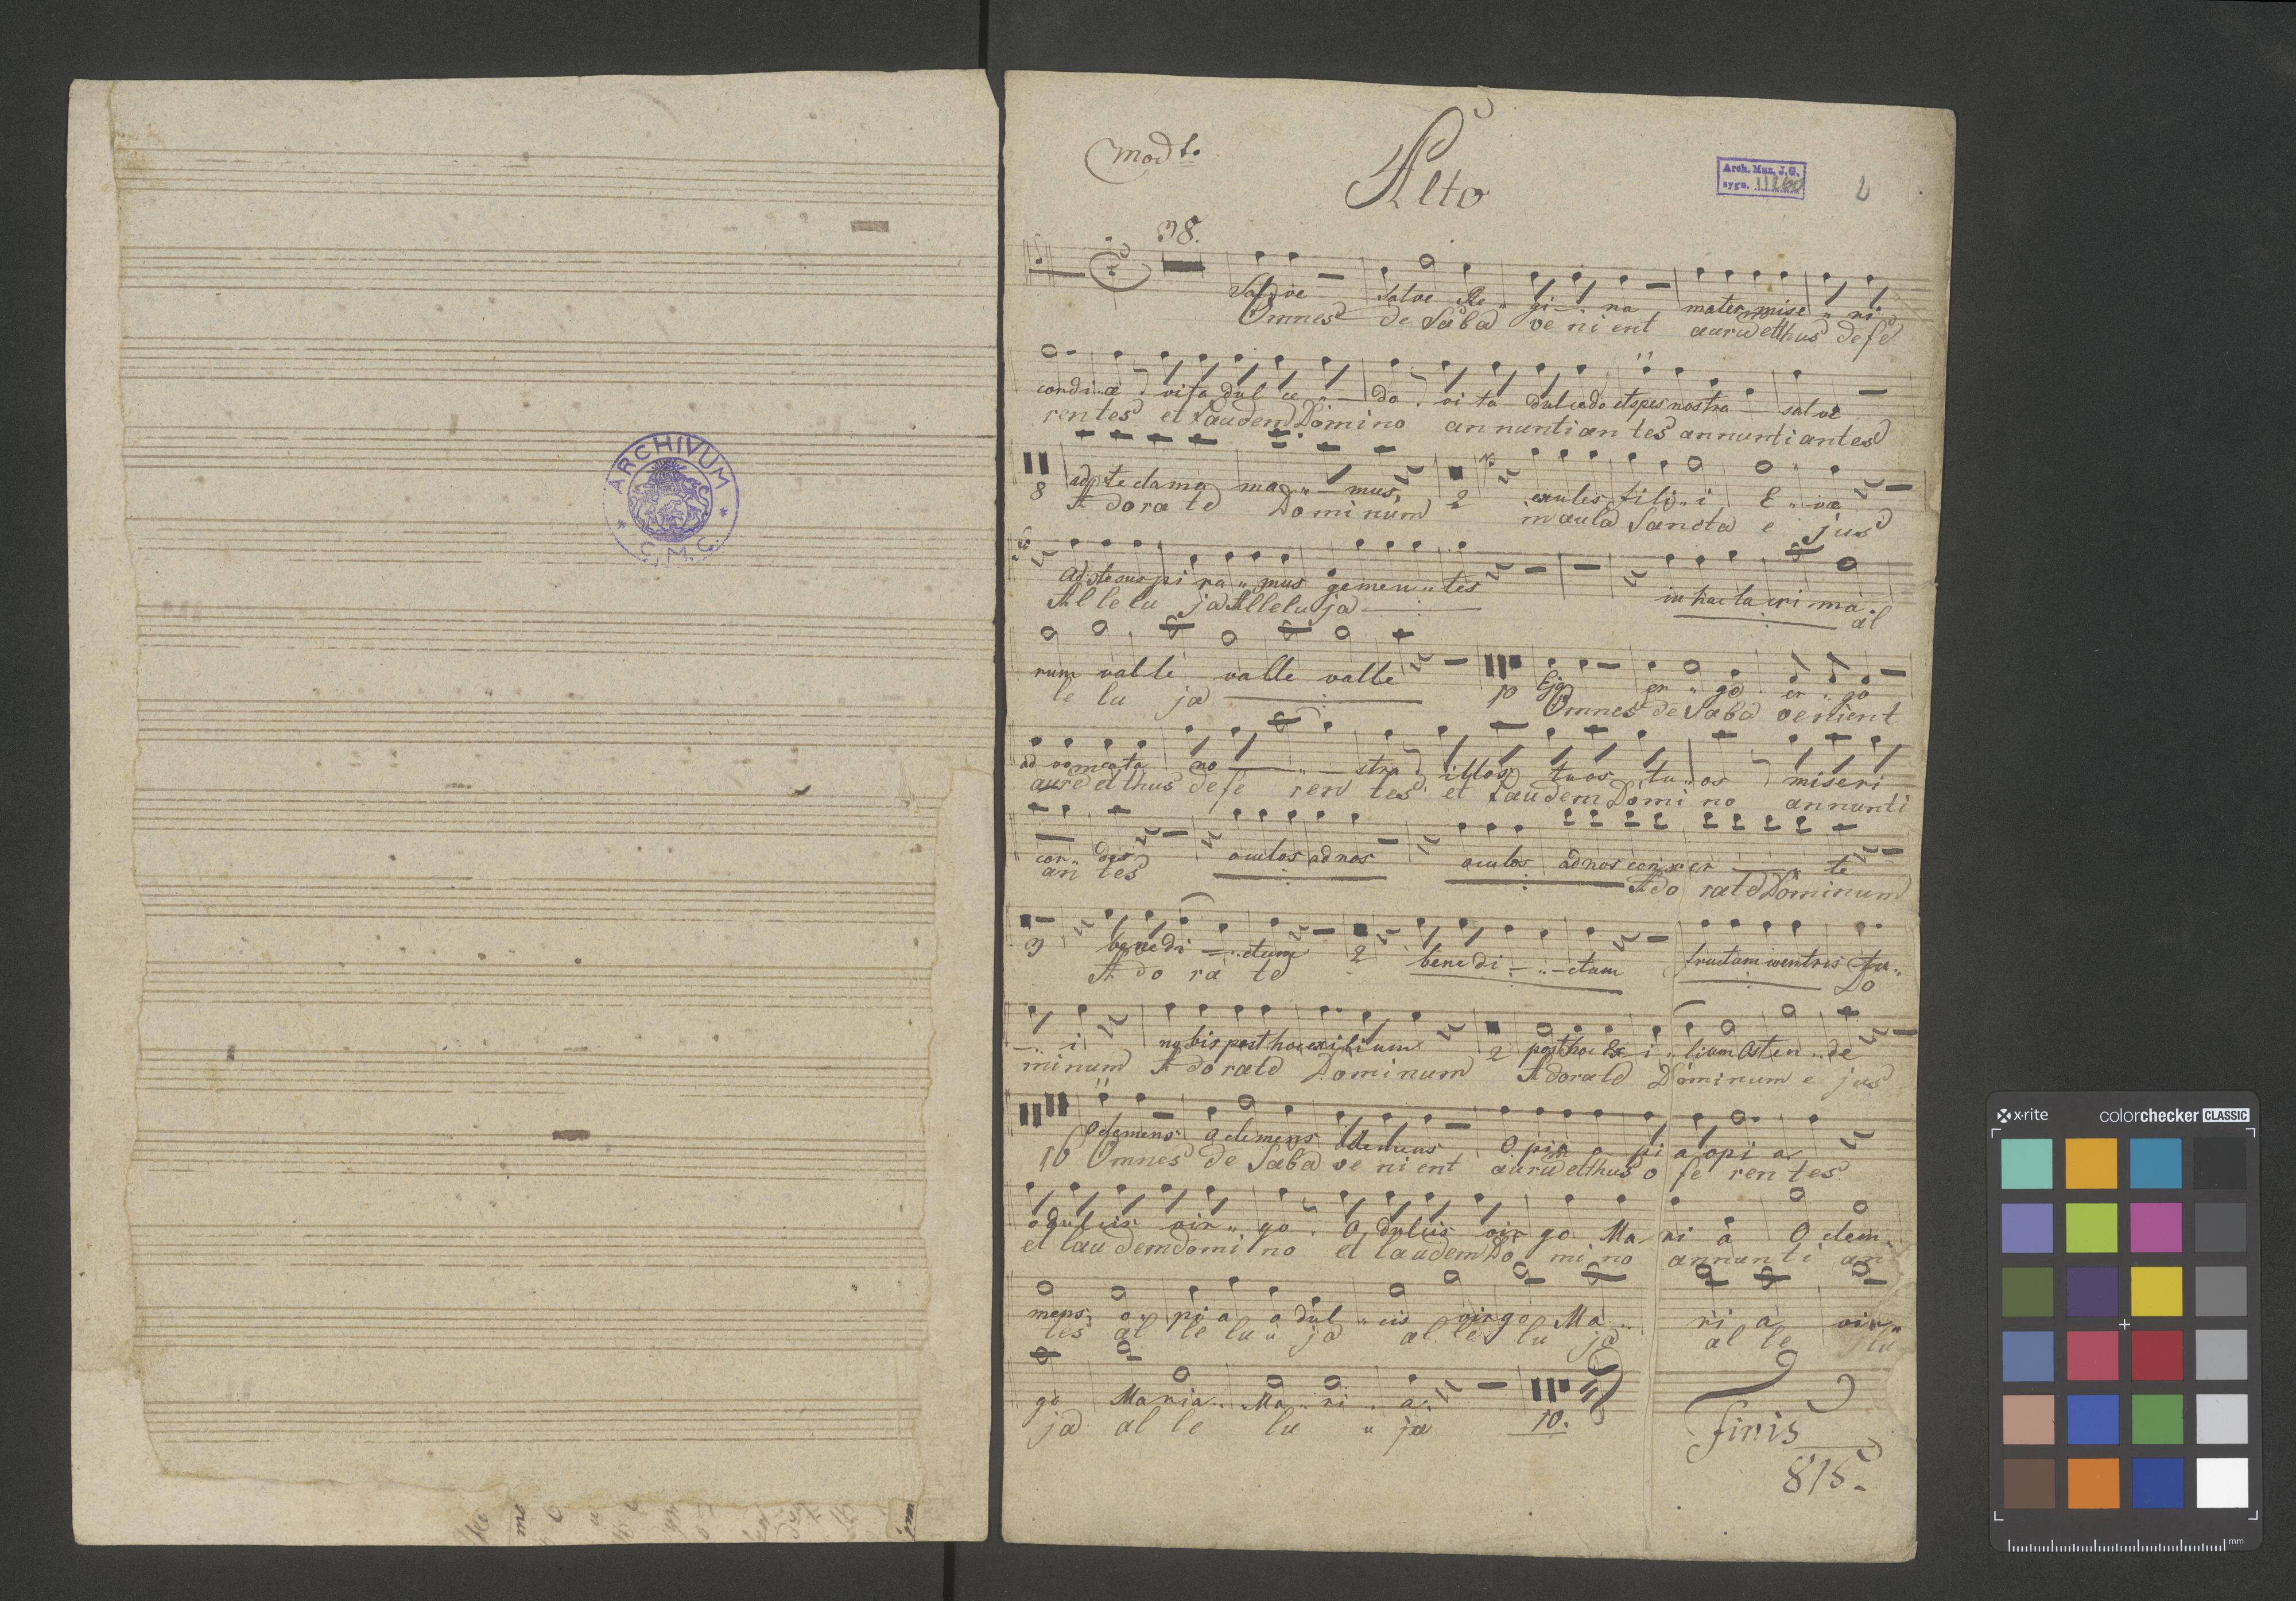 ARCHIVUM
C.M.C.
Mod to.
Alto
Arch. Muz. J.G.
sygn.
2
38.
Salve salve Re " gi - . na mater mise " ri "
Omnes de Saba ve ni ent auru et thus defe
cordiæ vita dul ce " - do . vi ta dulcedo et spes nostra salve
rentes et laudem Domino annuntiantes annuntiantes
8 ad te clama ma " - mus, 2 exules fili " i E " væ
A do ra te Dominum in aula Sancta e jus
Ad te suspi ra " mus gemen " tes in hac lacri ma .
Al le lu ja Alleluja al
rum valle valle valle 10 Eja er " go er " go
le lu ja Omnes de Saba venient
ad vomcata no - " - stra illos tuos tu " os miseri
aurū et thus defe ren tes et laudem Domi no annunti
cor " des oculos ad nos oculos ad nos conver - " te
an tes Ado rate Dominum
3 benedi - " - ctum 2 bene di - " - ctum fructum ventris tu "
A do ra te Do
- " i nobis post hoc exilium 2 post hoc Ex i " lium Osten " de
minum A do rate Dominum Adorate Dominum e jus
O clemens o clemens o clemens O pia o pi a o pi a
10 Omnes de Saba ve ni ent aurū et thus o fe ren tes
o dulcis vir " go . O dulcis vir go Ma ri a O clem "
et lau dem domi no et laudem Do mi no annun ti an
mens o " pi a o dul " cis virgo Ma " ri a vir "
tes al le lu " ja al le lu ja al le lu
go Maria " Ma " ri . a .
ja al le lu " ja 10.
finis
815.
x-rite colorchecker CLASSIC
mm